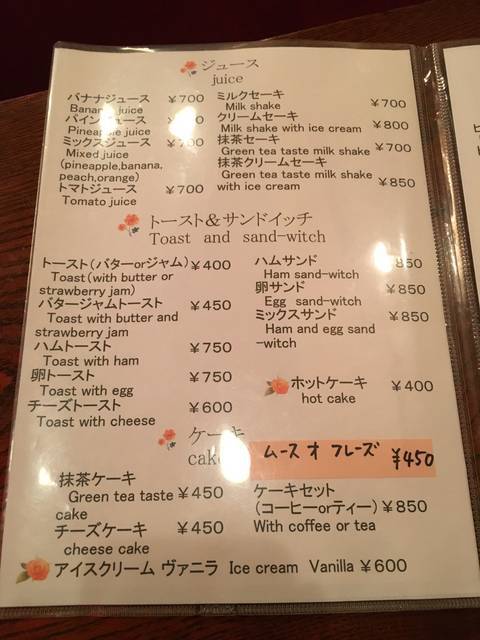 ジュース
juice
バナナジュース ¥700
Banana juice
パインジュース ¥700
Pineapple juice
ミックスジュース ¥700
Mixed juice
(pineapple,banana,
peach,orange)
トマトジュース ¥700
Tomato juice
ミルクセーキ ¥700
Milk shake
クリームセーキ ¥800
Milk shake with ice cream
抹茶セーキ ¥700
Green tea taste milk shake
抹茶クリームセーキ
Green tea taste milk shake ¥850
with ice cream
トースト&サンドイッチ
Toast and sand-witch
トースト(バターorジャム) ¥400
Toast(with butter or
strawberry jam)
バタージャムトースト ¥450
Toast with butter and
strawberry jam
ハムトースト ¥750
Toast with ham
卵トースト ¥750
Toast with egg
チーズトースト ¥600
Toast with cheese
ハムサンド ¥850
Ham sand-witch
卵サンド ¥850
Egg sand-witch
ミックスサンド ¥850
Ham and egg sand
-witch
ホットケーキ ¥400
hot cake
ケーキ
cake
ムース オ フレーズ ¥450
抹茶ケーキ
Green tea taste ¥450
cake
チーズケーキ ¥450
cheese cake
ケーキセット
(コーヒーorティー) ¥850
With coffee or tea
アイスクリーム ヴァニラ Ice cream Vanilla ¥600